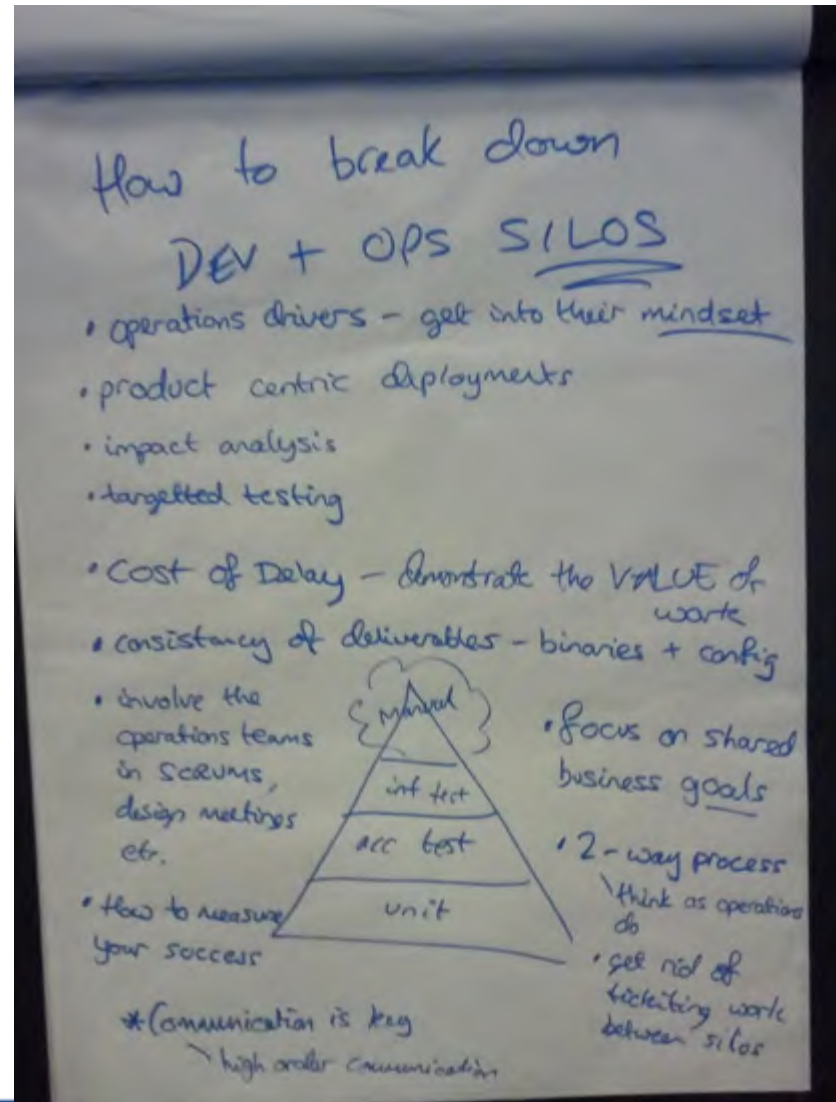 How to break down
DEV + OPS SILOS
• operations drivers - get into their mindset
• product centric deployments
• impact analysis
• targetted testing
• Cost of Delay - demonstrate the VALUE of
work
• consistancy of deliverables - binaries + config
• involve the
operations teams
in SCRUMS,
design meetings
etc.
• How to measure
your success
Manual
int test
acc test
unit
• focus on shared
business goals
• 2-way process
\ think as operations
do
• get rid of
ticketing work
between silos
* Communication is key
\ high order communication